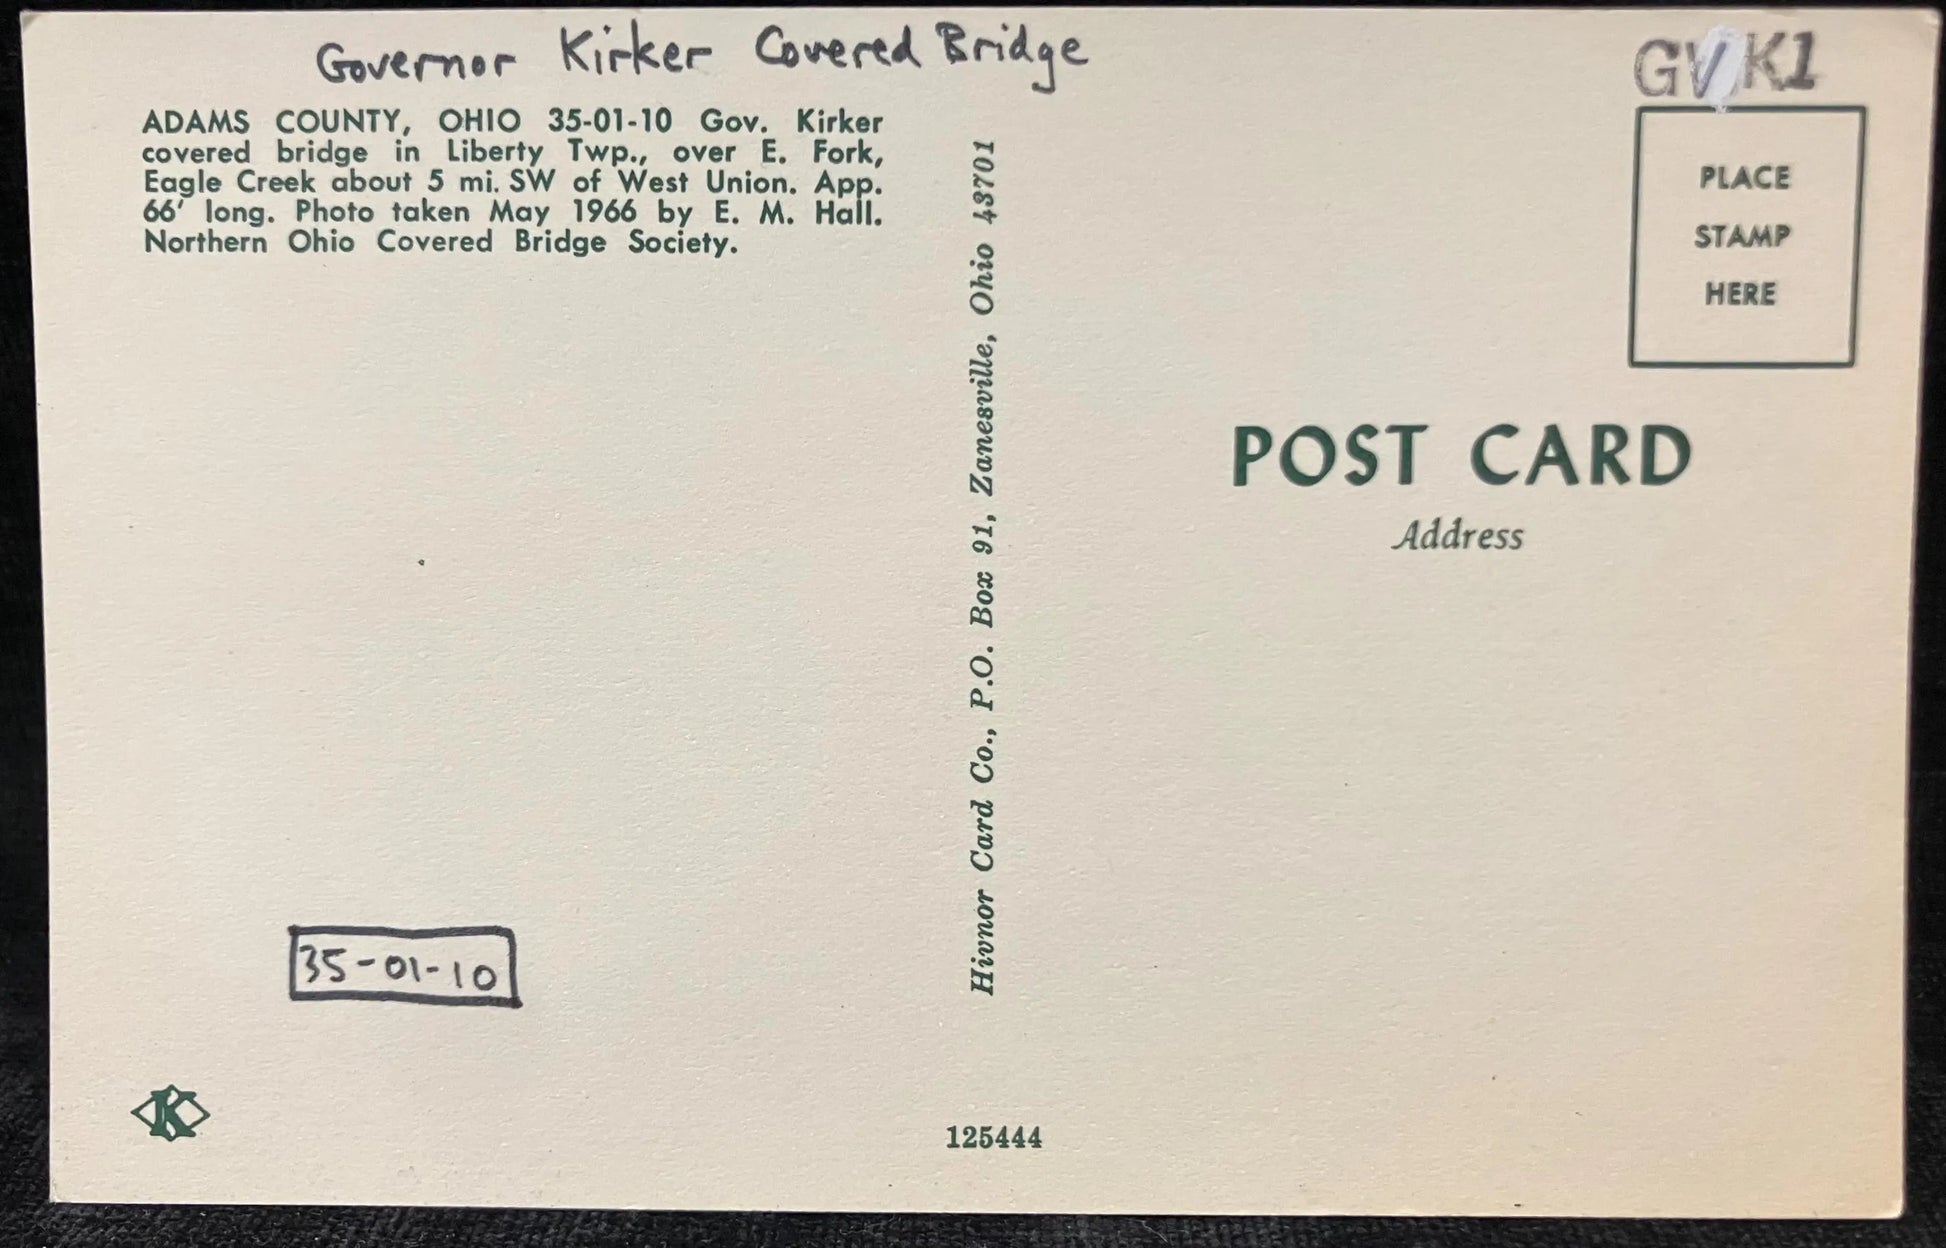 Governor Kirker Covered Bridge
GVK1
ADAMS COUNTY, OHIO 35-01-10 Gov. Kirker
covered bridge in Liberty Twp., over E. Fork,
Eagle Creek about 5 mi. SW of West Union. App.
66' long. Photo taken May 1966 by E. M. Hall.
Northern Ohio Covered Bridge Society.
Hivnor Card Co., P.O. Box 91, Zanesville, Ohio 43701
PLACE
STAMP
HERE
POST CARD
Address
35-01-10
K
125444